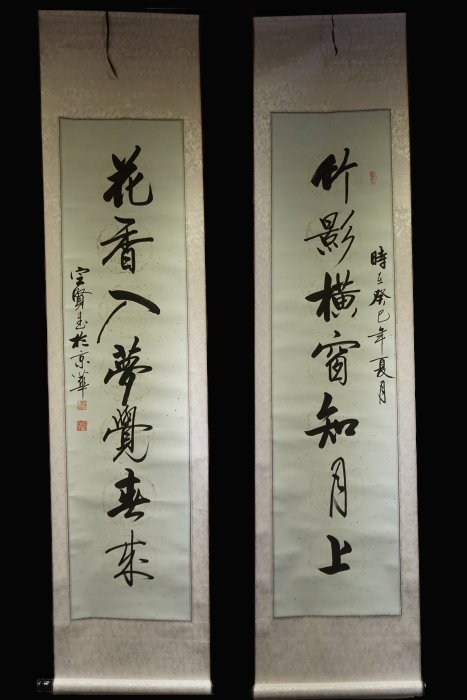 時在癸巳年夏月
竹影橫窗知月上
花香入夢覺春來
空賢書於京華